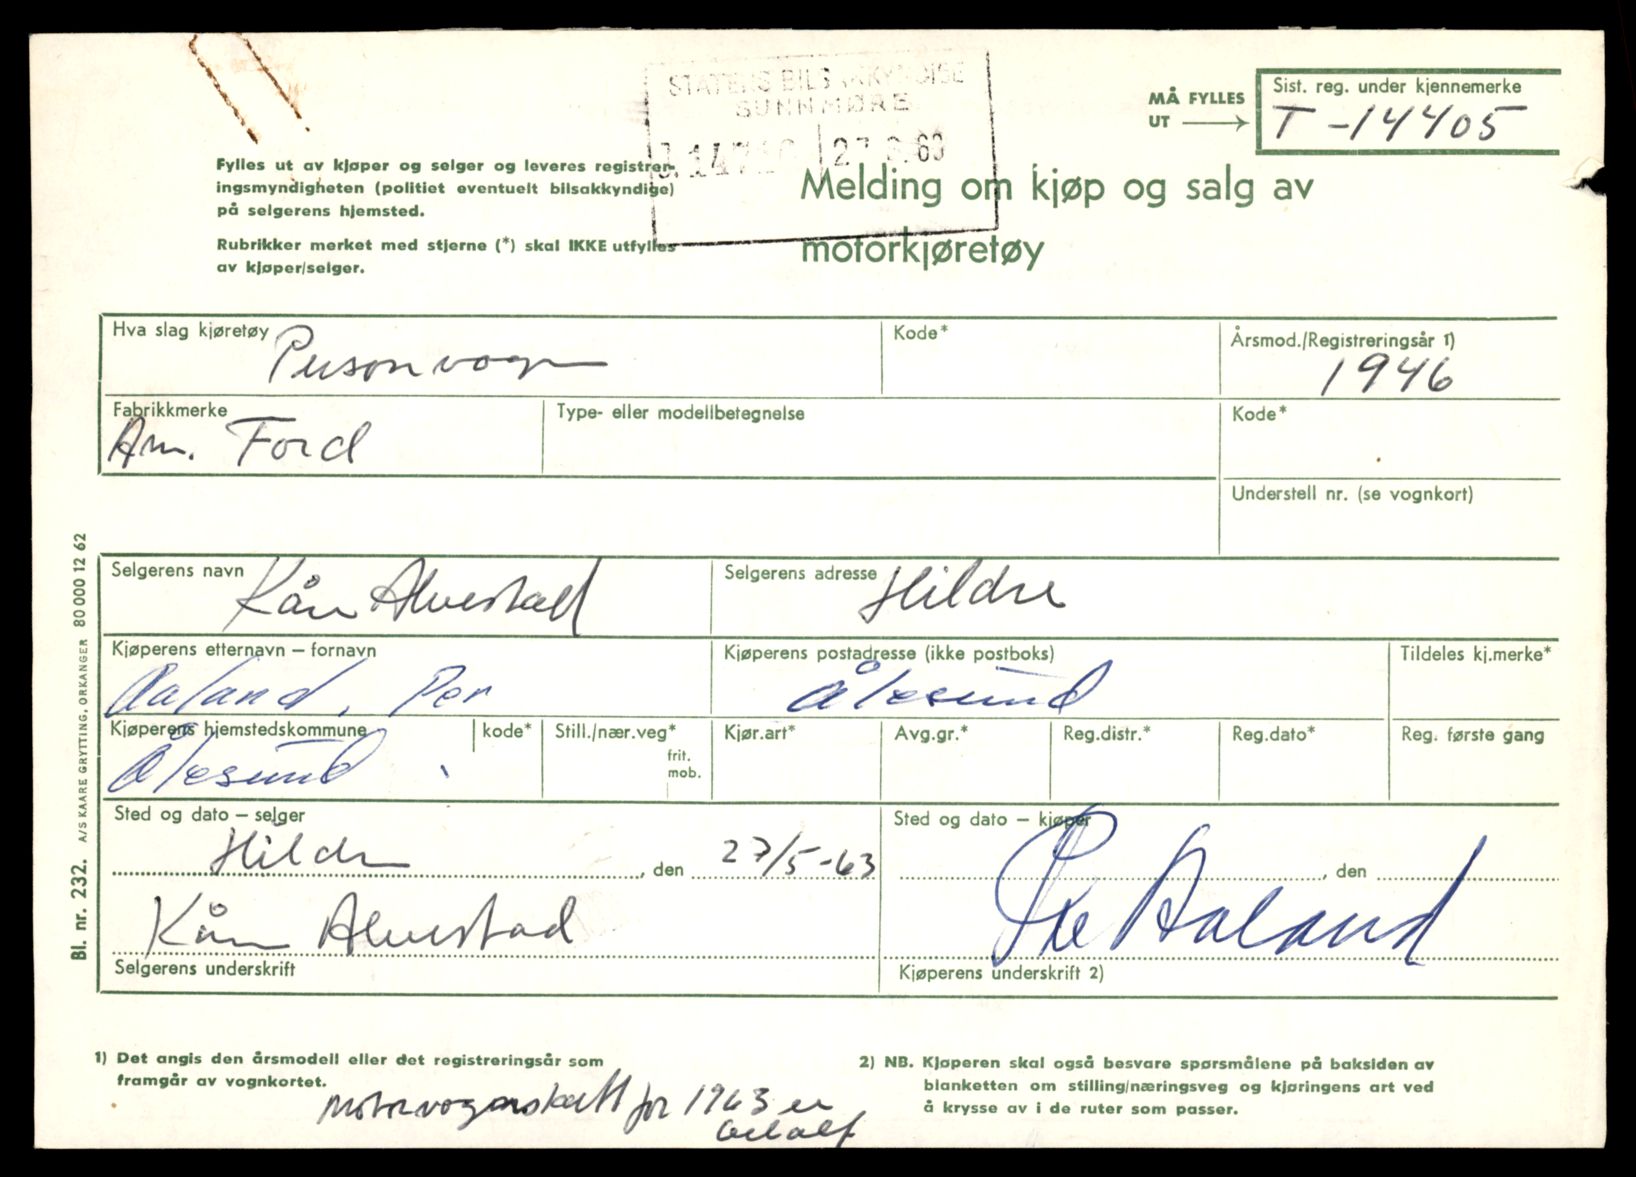 STATENS BILSAKKYNDIGE
SUNNMØRE
MÅ FYLLES
UT
Sist. reg. under kjennemerke
T-14405
Fylles ut av kjøper og selger og leveres registrer-
ingsmyndigheten (politiet eventuelt bilsakkyndige)
på selgerens hjemsted.
Rubrikker merket med stjerne (*) skal IKKE utfylles
av kjøper/selger.
Melding om kjøp og salg av
motorkjøretøy
Hva slag kjøretøy
Personvogn
Kode*
Årsmod./Registreringsår 1)
1946
Fabrikkmerke
Am. Ford
Type- eller modellbetegnelse
Kode*
Understell nr. (se vognkort)
Selgerens navn
Kåre Alvestad
Selgerens adresse
Hildre
Kjøperens etternavn – fornavn
Aaland, Per
Kjøperens postadresse (ikke postboks)
Ålesund
Tildeles kj.merke*
Kjøperens hjemstedskommune
Ålesund
kode*
Still./nær.veg*
frit.
mob.
Kjør.art*
Avg.gr.*
Reg.distr.*
Reg.dato*
Reg. første gang
Sted og dato – selger
Hildre, den 27/5-63
Kåre Alvestad
Selgerens underskrift
Sted og dato – kjøper
, den
Per Aaland
Kjøperens underskrift 2)
Bl. nr. 232. A/S KAARE GRYTTING, ORKANGER 80 000 12 62
1) Det angis den årsmodell eller det registreringsår som
framgår av vognkortet.
Motorvognskatt for 1963 er
betalt
2) NB. Kjøperen skal også besvare spørsmålene på baksiden av
blanketten om stilling/næringsveg og kjøringens art ved
å krysse av i de ruter som passer.